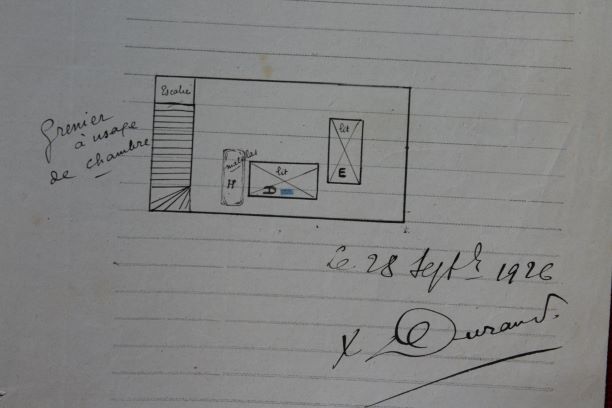 Grenier
à usage
de chambre
Escalier
lit
matelas
lit
E
H
D
Le 28 Septbre 1926
X Durand.